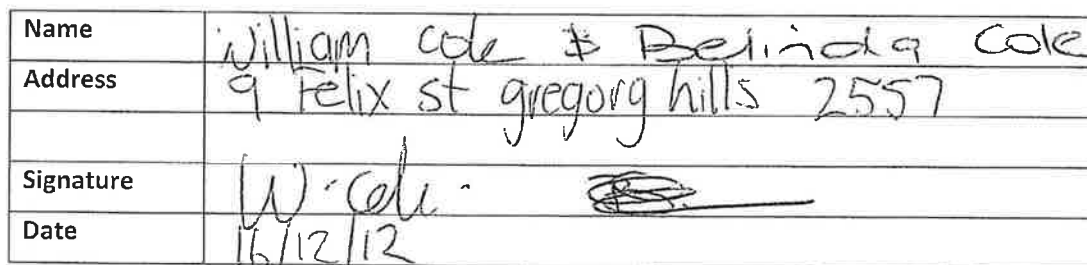 Name William Cole & Belinda Cole
Address 9 Felix st gregorg hills 2557
Signature W. Cole.
Date 16/12/12